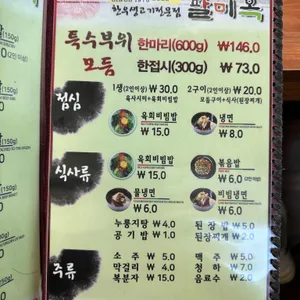 한우생고기전문점
특수부위 한마리(600g) ₩146.0
모듬 한접시(300g) ₩ 73.0
점심
1생(2인이상) ₩ 30.0
육사시미+육회비빔밥
2구이(2인이상) ₩ 20.0
모듬구이+식사(된장찌개)
육회비빔밥
₩ 15.0
냉면
₩ 8.0
식사류
육회비빔밥
₩ 15.0
볶음밥
₩ 6.0
물냉면
₩ 6.0
비빔냉면
₩ 6.0
누룽지탕 ₩4.0
된장밥 ₩5.0
공기밥 ₩1.0
된장찌개 ₩2.0
주류
소주 ₩ 5.0
맥주 ₩ 5.0
막걸리 ₩ 4.0
청하 ₩ 7.0
복분자 ₩ 15.0
음료수 ₩ 2.0
(150g)
(150g)
(150g)